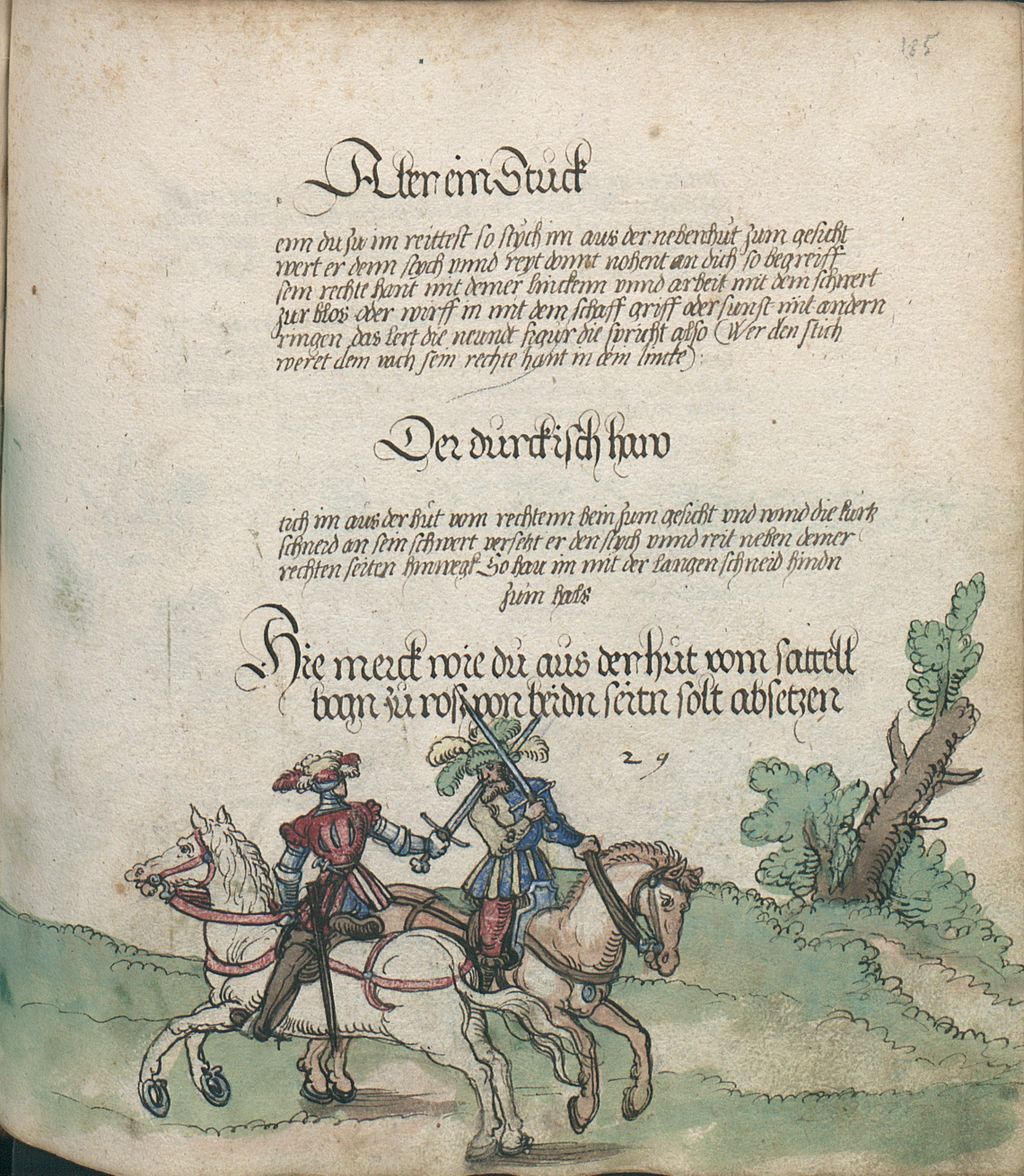 185
Aber ein Stuck
enn du zu im reittest so stych im aus der nebenhut zum gesicht
wert er denn stych vnnd reyt domit nohent an dich so begreiff
sein rechte hant mit deiner linckenn vnnd arbeit mit dem schwert
zur blos oder wirff in mit dem schaff griff oder sunst mit andern
ringen das lert die neundt figur die spricht also (Wer den stich
weret dem vach sein rechte hant in dein lincke):
Der durckisch haw
tich im aus der hut vom rechtenn bein zum gesicht vnd wind die kurtz
schneid an sein schwert versetzt er den stych vnnd reit neben deiner
rechten seiten hinwegk So hau im mit der langen schneid hindn
zum hals
Hie merck wie du aus der hut vom sattell
bogn zu ross von beidn seitn solt absetzen
29